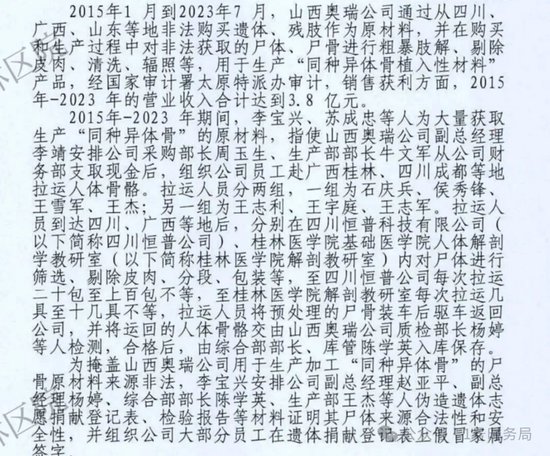 2015年1 月到2023年7 月，山西奥瑞公司通过从四川、
广西、山东等地非法购买遗体、残肢作为原材料，并在购买
和生产过程中对非法获取的尸体、尸骨进行粗暴肢解、剔除
皮肉、清洗、辐照等，用于生产“同种异体骨植入性材料”
产品，经国家审计署太原特派办审计，销售获利方面，2015
年-2023 年的营业收入合计达到3.8 亿元。
2015年-2023 年期间，李宝兴、苏成忠等人为大量获取
生产“同种异体骨”的原材料，指使山西奥瑞公司副总经理
李靖安排公司采购部长周玉生、生产部部长牛文军从公司财
务部支取现金后，组织公司员工赴广西桂林、四川成都等地
拉运人体骨骼。拉运人员分两组，一组为石庆兵、侯秀锋、
王雪军、王杰；另一组为王志利、王宇庭、王志军。拉运人
员到达四川、广西等地后，分别在四川恒普科技有限公司（
以下简称四川恒普公司）、桂林医学院基础医学院人体解剖
学教研室（以下简称桂林医学院解剖教研室）内对尸体进行
筛选、剔除皮肉、分段、包装等，至四川恒普公司每次拉运
二十包至上百包不等，至桂林医学院解剖教研室每次拉运几
具至十几具不等，拉运人员将预处理的尸骨装车后驱车返回
公司，并将运回的人体骨骼交由山西奥瑞公司质检部长杨婷
等人检测，合格后，由综合部部长、库管陈学英入库保存。
为掩盖山西奥瑞公司用于生产加工“同种异体骨”的尸
骨原材料来源非法，李宝兴安排公司副总经理赵亚平、副总
经理杨婷、综合部部长陈学英、生产部王杰等人伪造遗体志
愿捐献登记表、检验报告等材料证明其尸体来源合法性和安
全性，并组织公司大部分员工在遗体捐献登记表上假冒家属
签字。
林区院
林区院